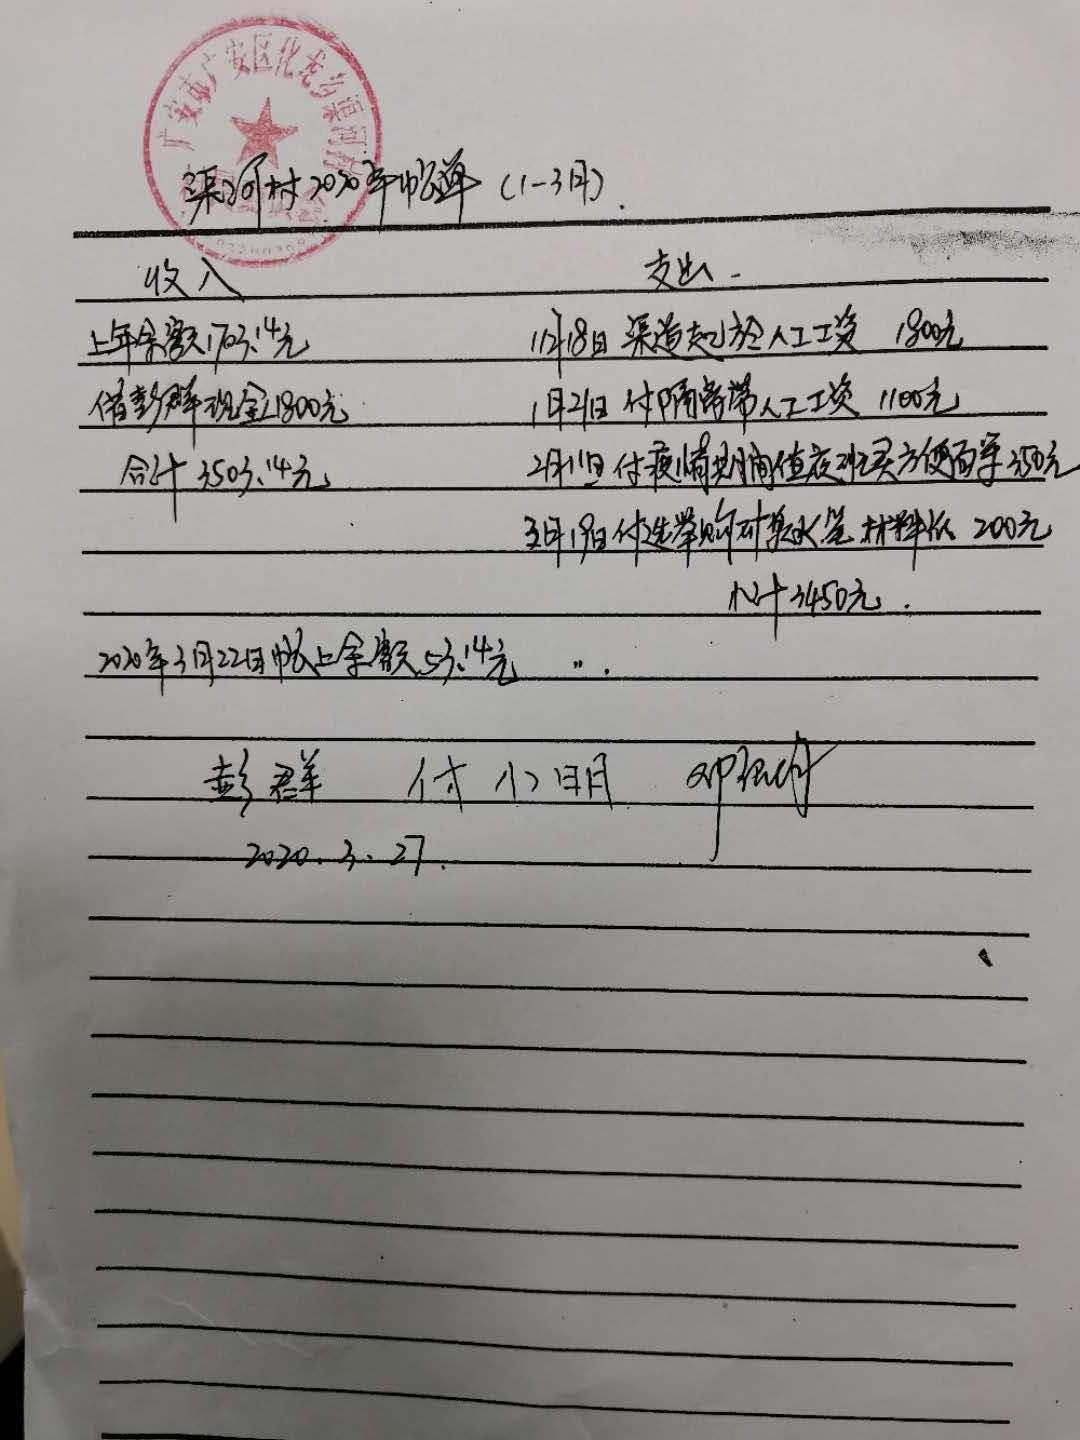 广安市广安区化龙乡渠河村
渠河村2020年帐单(1-3月).
收入 支出
上年余额1703.14元 11月18日 渠道起淤人工工资 1800元
借彭群现金1800元 1月21日 付隔离带人工工资 1100元
合计 3503.14元 2月11日 付疫情期间值夜班买方便面等350元
3月19日付选举购矿泉水笔材料纸 200元
小计3450元.
2020年3月22日帐上余额53.14元
彭群 付小明
2020.3.27.